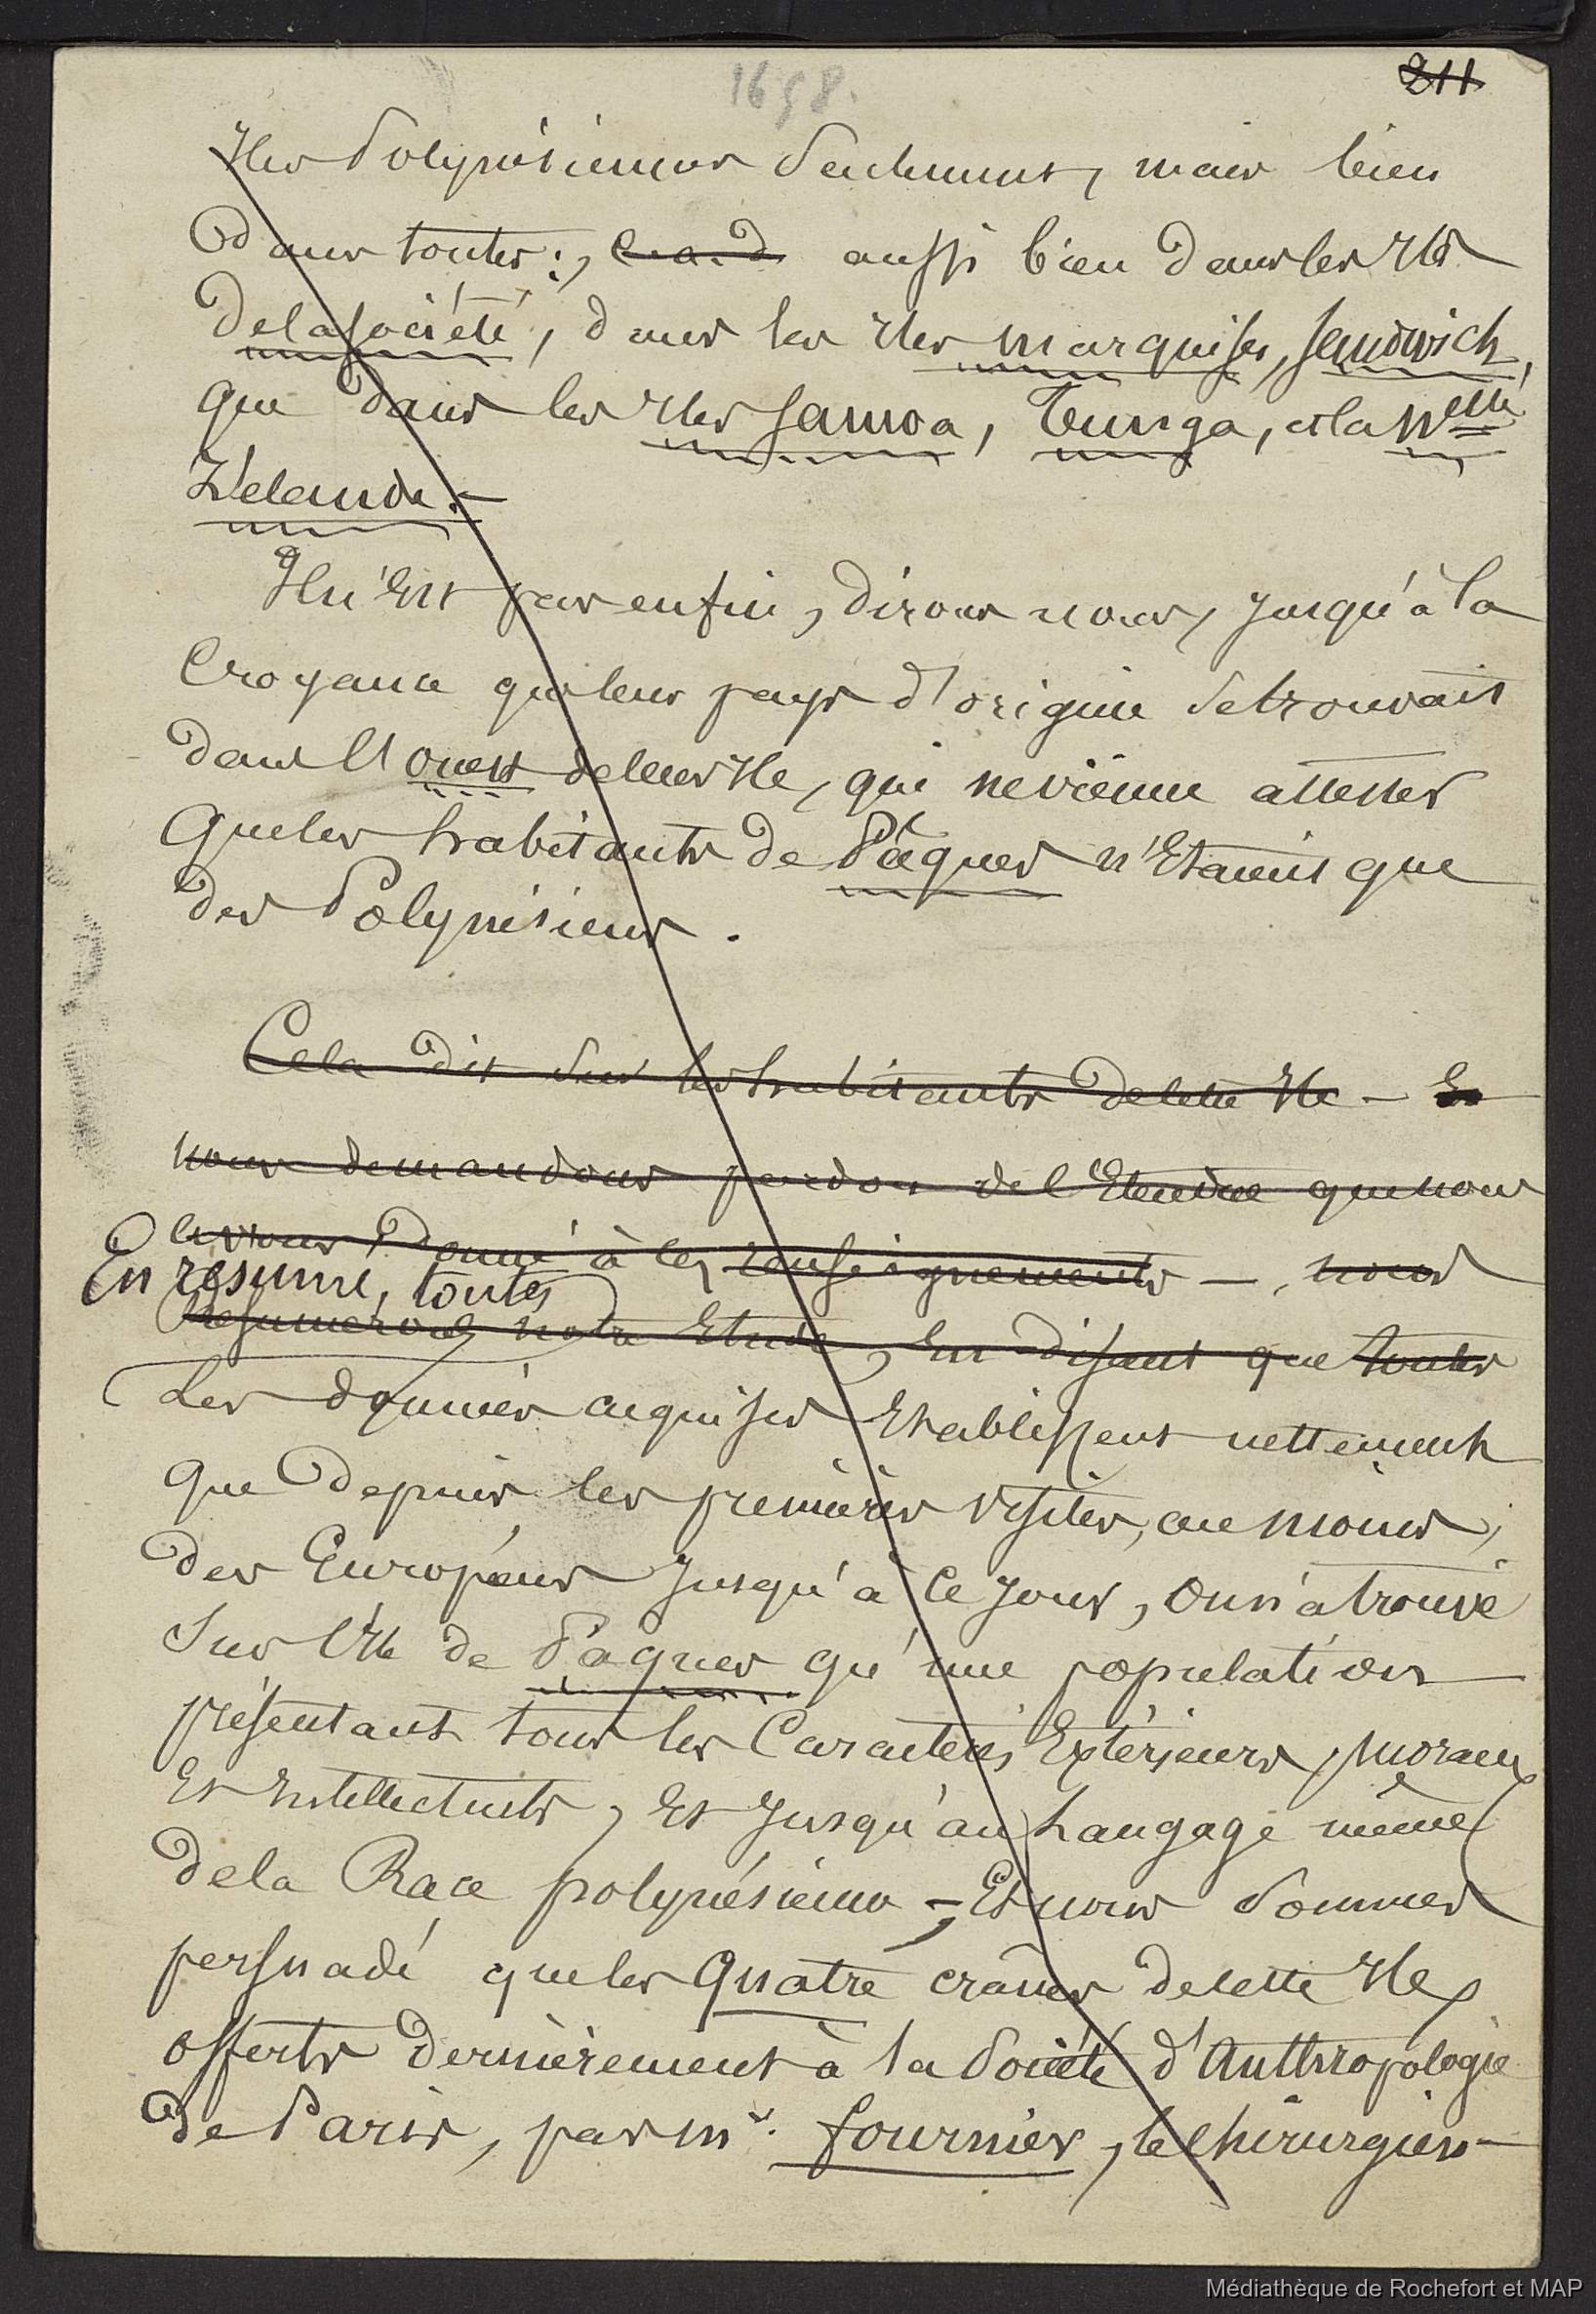 1698.
211
Iles Polynésiennes Seulement, mais bien
Dans toutes:, c.a.d. aussi bien Dans les Iles
De la Société, dans les Iles Marquises, Sandwich,
que dans les Iles Samoa, Tunga, et la Nelle
Zélande. —
Il n'Est pas enfin, Dirons nous, Jusqu'à la
Croyance que leur pays d'origine Se trouvait
dans l'Ouest de leur Ile, qui ne vienne attester
que les habitants de Pâques n'Etaient que
des Polynésiens.
Cela dit Sur les habitants de cette Ile — Et
nous demandons pardon de l'Etendue que nous
avons Donné à ces renseignements —, nous
En résumé, toutes
Résumerons notre Etude, En disant que toutes
Les données acquises Etablissent nettement
que Depuis les premières visites, au moins,
des Européens Jusqu'à ce Jour, on n'a trouvé
Sur l'Ile de Pâques qu'une population
présentant tous les Caractères Extérieurs, Moraux
Et Intellectuels, Et Jusqu'au Langage même
De la Race polynésienne —, Et nous Sommes
persuadé que les quatre crânes de cette Ile,
offerts Dernièrement à la Société d'Anthropologie
De Paris, par Mr. fournier, le chirurgien —
Médiathèque de Rochefort et MAP